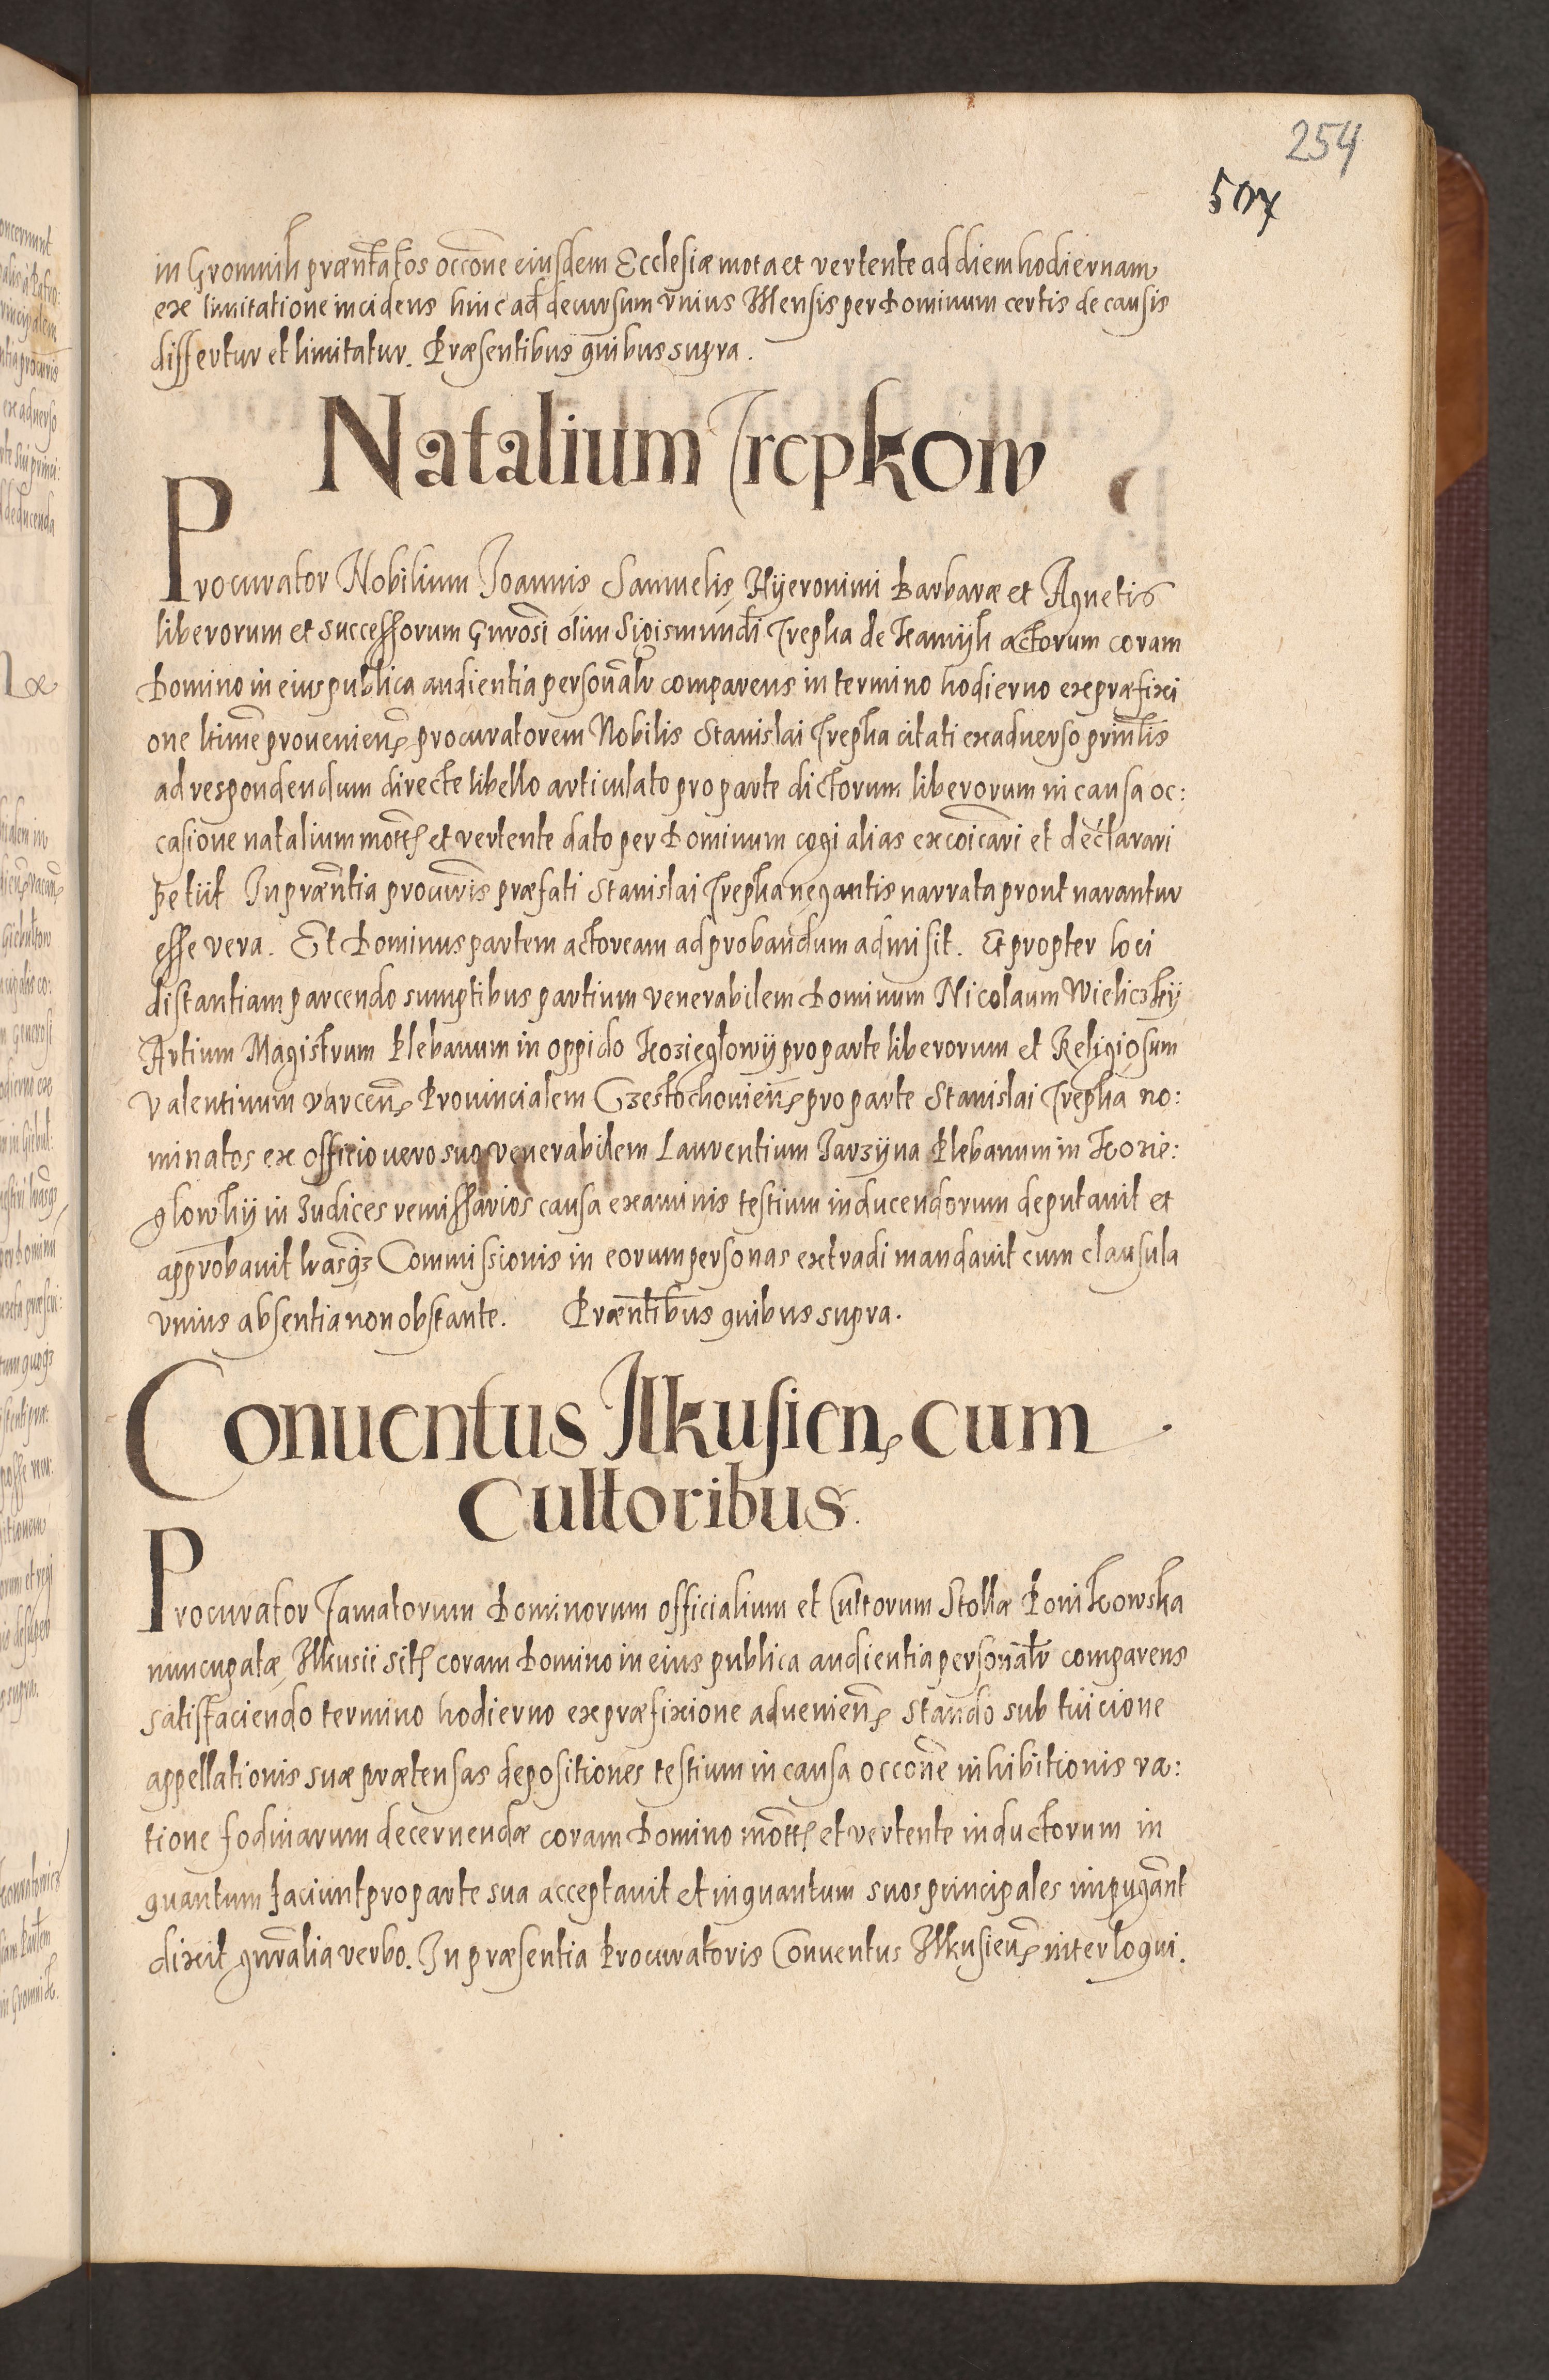 254
507
in Gromnik præntatos occone eiusdem Ecclesiæ mota et vertente ad diem hodiernam
ex limitatione incidens hinc ad decursum vnius Mensis per Dominum certis de causis
differtur et limitatur. Præsentibus quibus supra.
Natalium Trepkow
Procurator Nobilium Joannis Samuelis Hyeronimi Barbaræ et Agnetis
liberorum et successorum Gnrosi olim Sigismundi Trepka de Kamyk actorum coram
Domino in eius publica audientia personalr comparens in termino hodierno ex præfixi
one ltime prouenien procuratorem Nobilis Stanislai Trepka citati ex aduerso prinlis
ad respondendum directe libello articulato pro parte dictorum liberorum in causa oc:
casione natalium mott et vertente dato per Dominum cogi alias excoicari et declarari
petiit In præntia procuris præfati Stanislai Trepka negantis narrata prout narantur
esse vera. Et Dominus partem actoream ad probandum admisit. Et propter loci
distantiam parcendo sumptibus partium venerabilem Dominum Nicolaum Wieliczky
Artium Magistrum Plebanum in oppido Kozieglowy pro parte liberorum et Religiosum
Valentinum varcen Prouincialem Czestochouien pro parte Stanislai Trepka no:
minatos ex officio vero suo venerabilem Laurentium Jarzyna Plebanum in Kozie:
glowky in Judices remissarios causa examinis testium inducendorum deputauit et
approbauit lrasq Commissionis in eorum personas extradi mandauit cum clausula
vnius absentia non obstante. Præntibus quibus supra.
Conuentus Ilkusien cum
Cultoribus.
Procurator Famatorum Dominorum officialium et Cultorum Stollæ Ponikowska
nuncupatæ Ilkusii sit coram Domino in eius publica audientia personalr comparens
satisfaciendo termino hodierno ex præfixione aduenien stando sub tuicione
appellationis suæ prætensas depositiones testium in causa occone inhibitionis ra:
tione fodinarum decernendæ coram Domino mott et vertente inductorum in
quantum faciunt pro parte sua acceptauit et inquantum suos principales impugant
dixit gnralia verbo. In præsentia Procuratoris Conuentus Ilkusien interloqui.